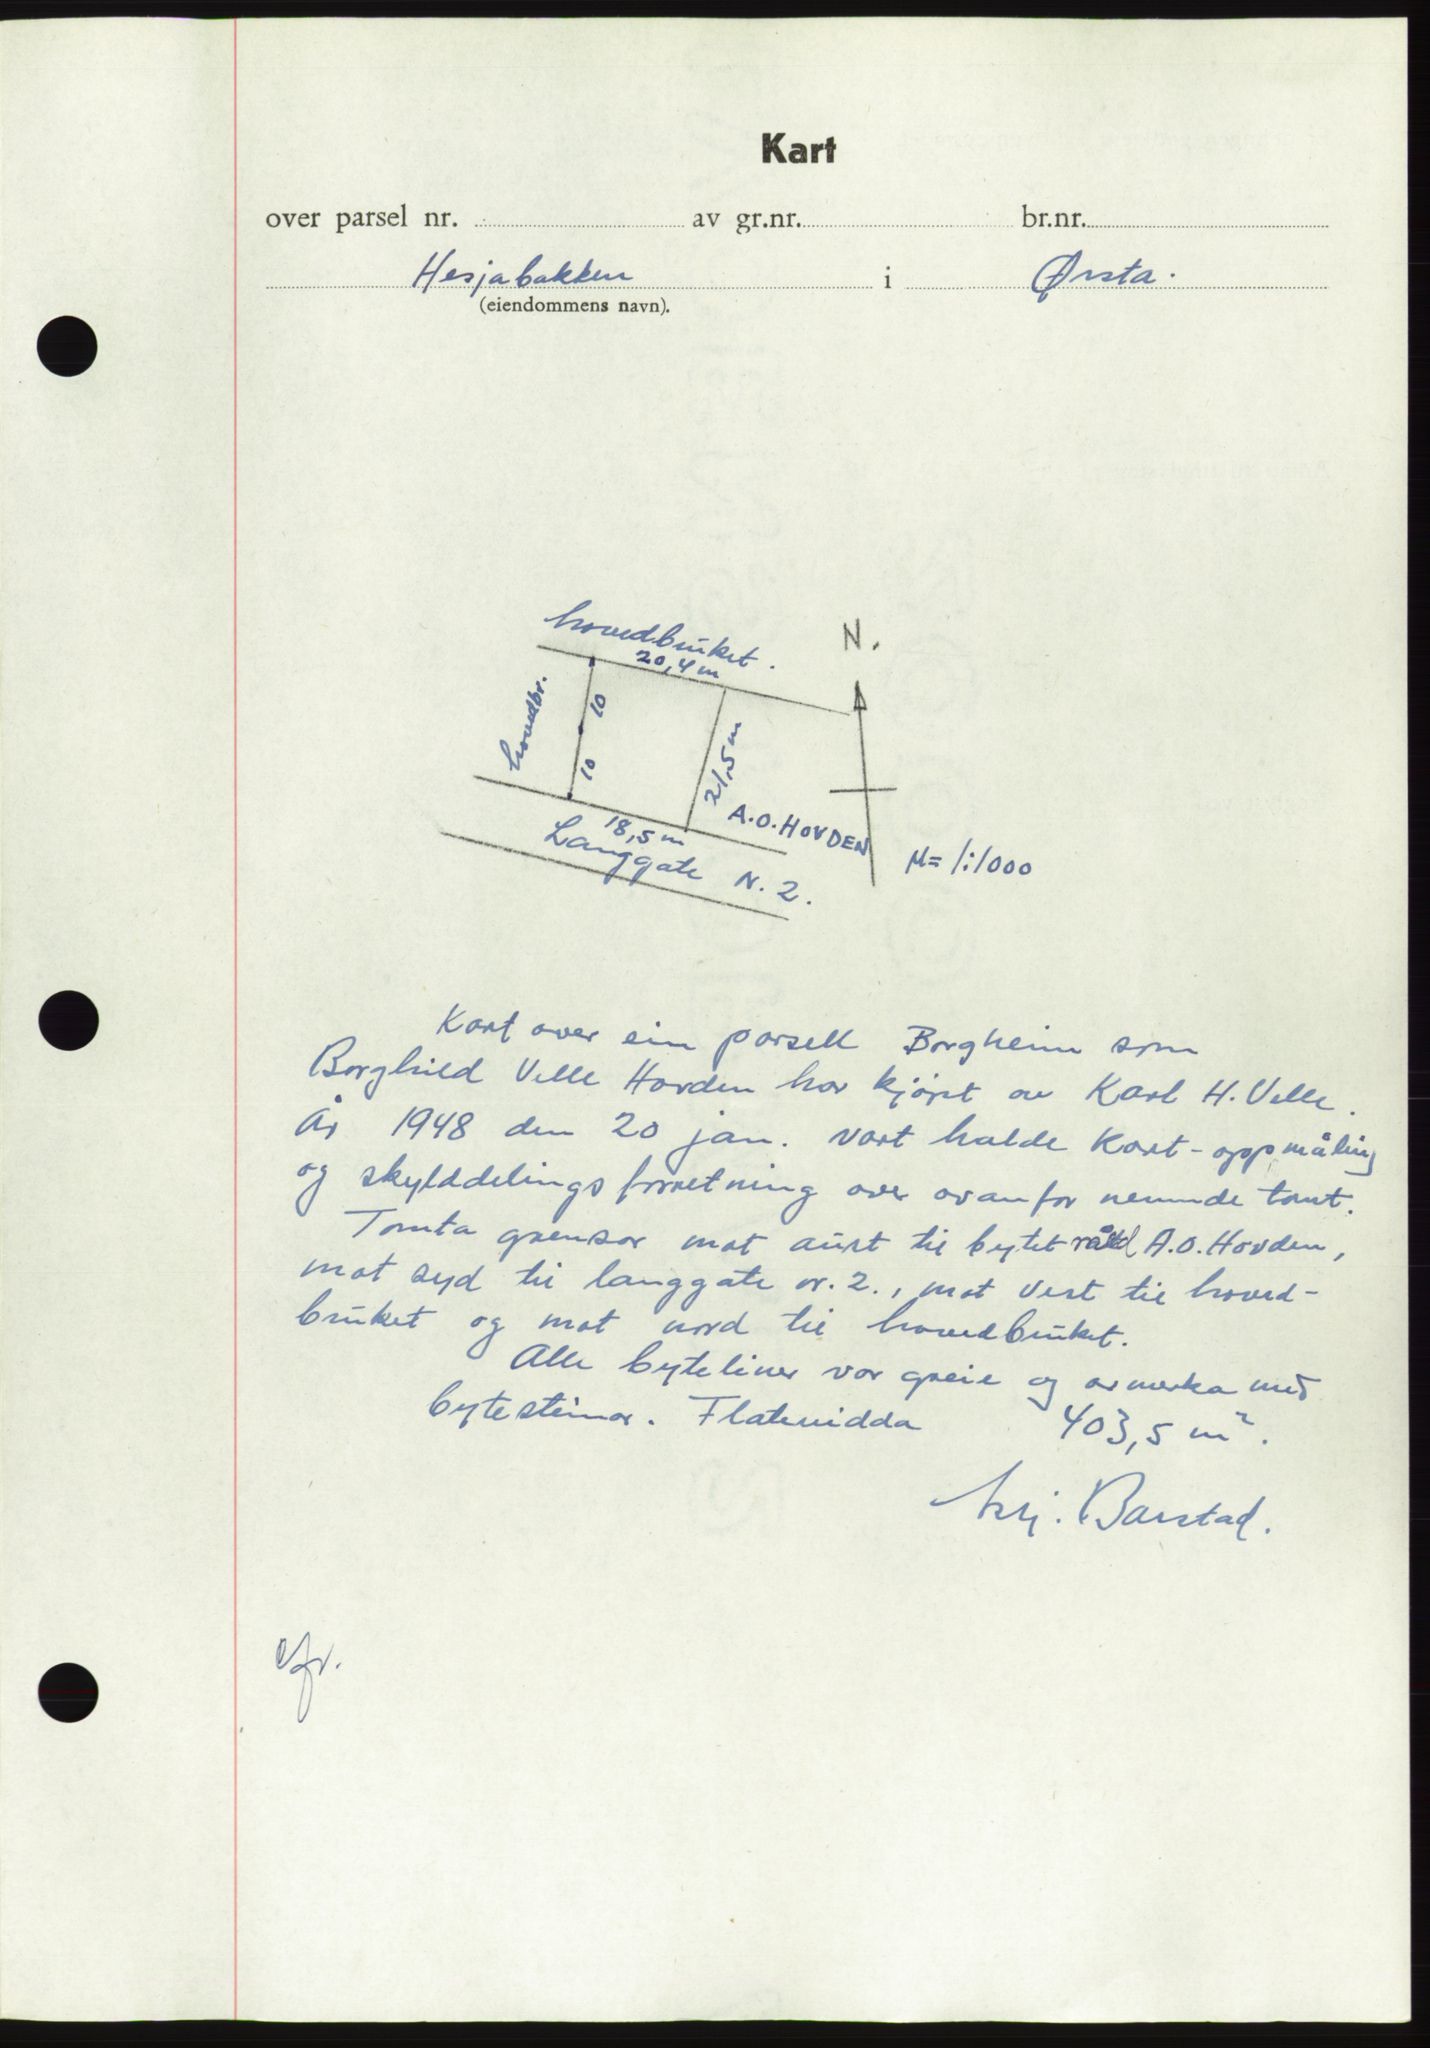 Kart
over parsel nr. av gr.nr. br.nr.
Hesjabakken i Ørsta.
(eiendommens navn).
hovedbruket.
20,4 m
N.
hovedbr.
10
10
21,5 m
A.O. HOVDEN
18,5 m
Langgate N. 2.
M= 1:1000
Kart over ein parsell Borgheim som
Borghild Velle Hovden har kjøpt av Karl H. Velle.
År 1948 den 20 jan. vart halde Kart-oppmåling
og skylddelingsforretning over ovanfor nemnde tomt.
Tomta grensar mot aust til bytet A.O. Hovden,
mot syd til langgate nr. 2., mot vest til hoved-
bruket og mot nord til hovedbruket.
Alle byteliner var greie og avmerka med
bytesteinar. Flatevidda 403,5 m².
Barstad.